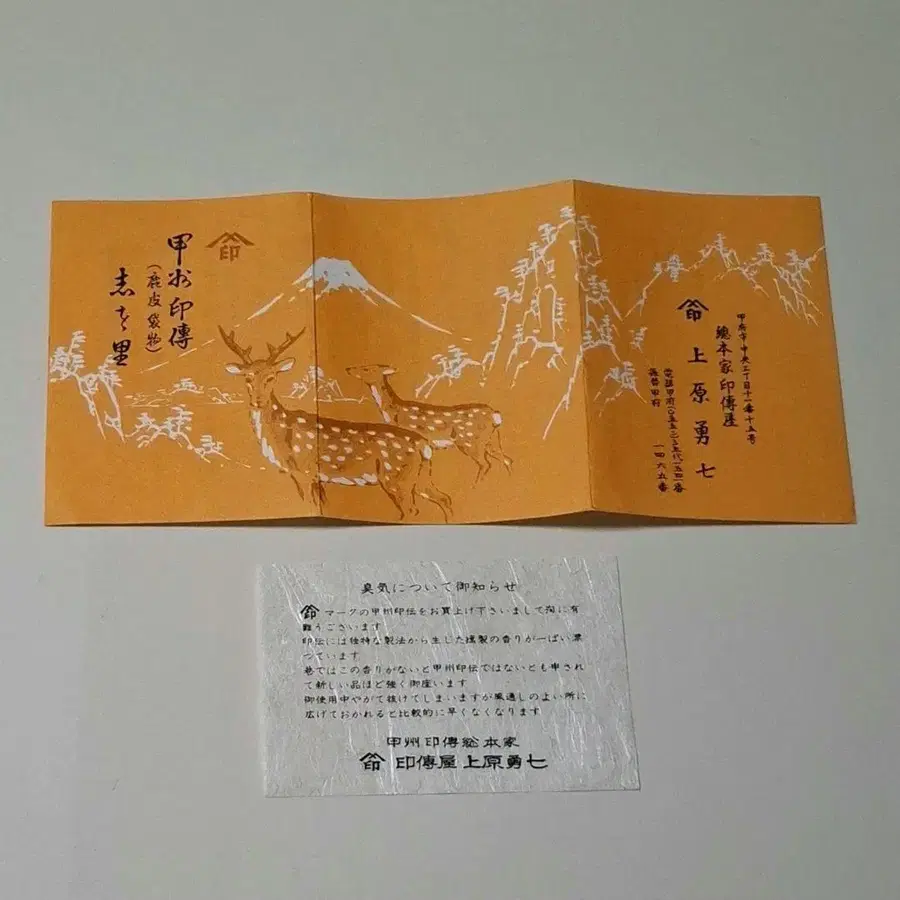 印
甲州印傳
(鹿皮袋物)
志をり
甲府市中央三丁目十一番十五号
總本家印傳屋
印 上原勇七
振替甲府 一四六五番
臭気について御知らせ
印 マークの甲州印伝をお買上げ下さいまして洵に有
難うございます
印伝には独特な製法から生した燻製の香りが一ぱい漂
つています
巷ではこの香りがないと甲州印伝ではないとも申され
て新しい品ほど強く御座います
御使用中やがて抜けてしまいますが風通しのよい所に
広げておかれると比較的に早くなくなります
甲州印傳総本家
印 印傳屋上原勇七